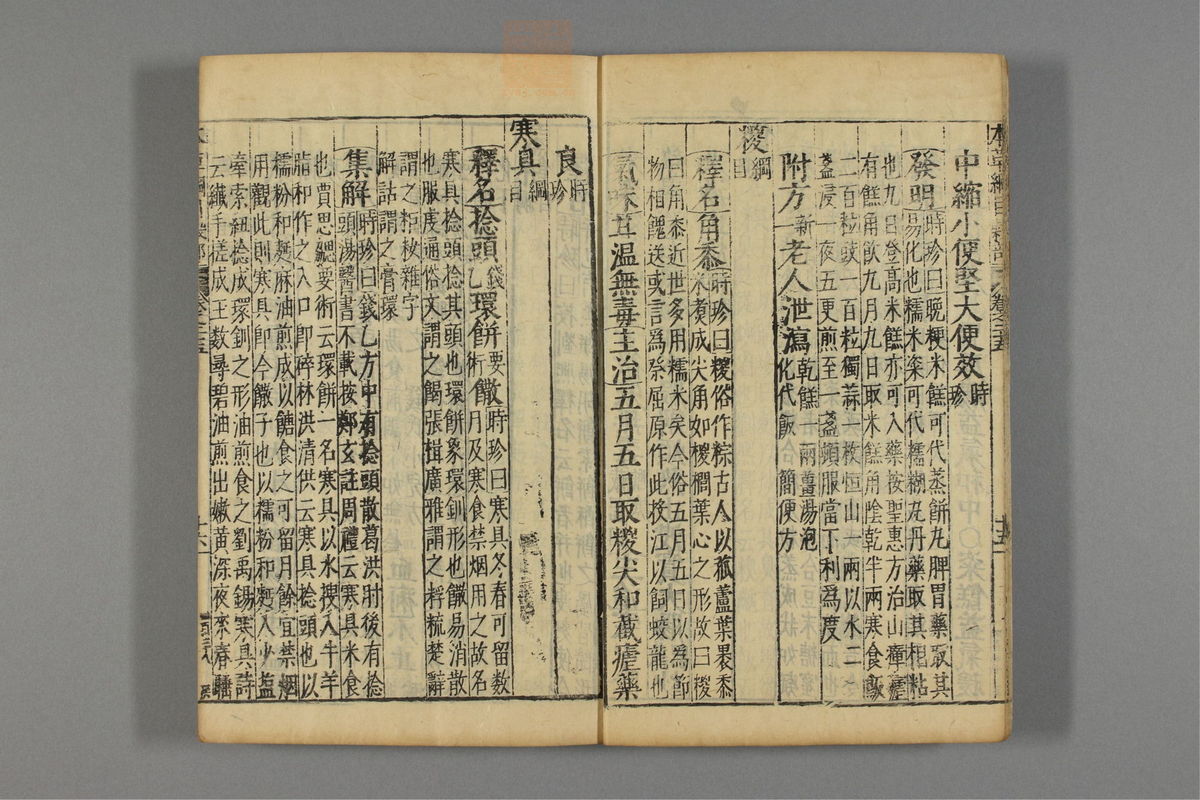 中縮小便堅大便效時珍
發明時珍曰晚粳米餻可代蒸餅丸脾胃藥取其
易化也糯米粢可代糯糊丸丹藥取其相粘
也九日登高米餻亦可入藥按聖惠方治山瘴瘧
有餻角飲九月九日取米餻角陰乾半兩寒食飯
二百粒豉一百粒獨蒜一枚恒山一兩以水二
盞浸一夜五更煎至一盞頓服當下利爲度
附方新一老人泄瀉乾餻一兩薑湯泡化代飯簡便方
糉綱目
釋名角黍時珍曰糉俗作粽古人以菰蘆葉裹黍
米煮成尖角如糉櫚葉心之形故曰糉
曰角黍近世多用糯米矣今俗五月五日以爲節
物相餽送或言爲祭屈原作此投江以飼蛟龍也
氣味甘溫無毒主治五月五日取糉尖和截瘧藥
良時珍
寒具綱目
釋名捻頭錢乙環餅要術饊時珍曰寒具冬春可留數
月及寒食禁烟用之故名
寒具捻頭捻其頭也環餅象環釧形也饊易消散
也服虔通俗文謂之餲張揖廣雅謂之粰䊩楚辭
謂之粔籹雜字
解詁謂之膏環
集解時珍曰錢乙方中有捻頭散葛洪肘後有捻
頭湯醫書不載按鄭玄註周禮云寒具米食
也賈思勰要術云環餅一名寒具以水搜入牛羊
脂和作之入口卽碎林洪清供云寒具捻頭也以
糯粉和麪麻油煎成以餹食之可留月餘宜禁烟
用觀此則寒具卽今饊子也以糯粉和麪入少鹽
牽索紐捻成環釧之形油煎食之劉禹錫寒具詩
云纖手搓成玉數尋碧油煎出嫩黃深夜來春睡